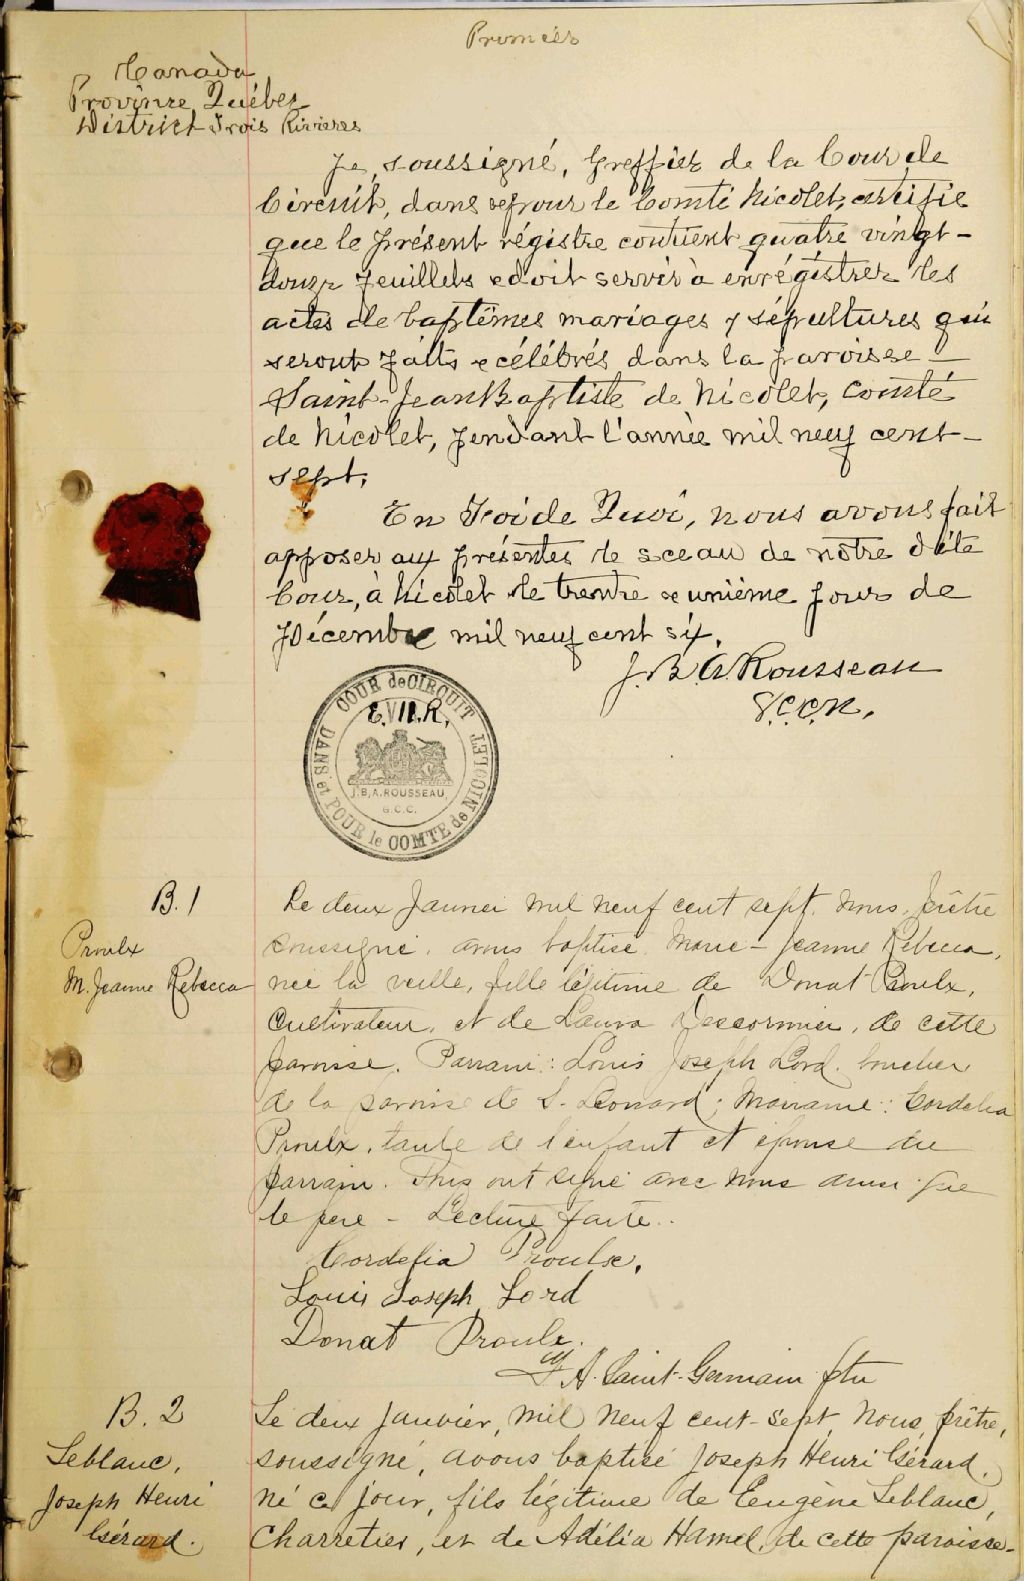 Premier
Canada
Province Québec
District Trois Rivieres
Je, soussigné, Greffier de la Cour de
Circuit, dans & pour le Comté Nicolet, certifie
que le présent régistre contient quatre vingt-
douze feuillets & doit servir à enrégistrer les
actes de baptêmes mariages & sépultures qui
seront faits & célébrés dans la paroisse
Saint-Jean Baptiste de Nicolet, comté
de Nicolet, pendant l'année mil neuf cent-
sept.
En Foi de Quoi, nous avons fait
apposer aux présentes le sceau de notre dite
Cour, à Nicolet le trente & unième jour de
Décembre mil neuf cent six.
J. B. A. Rousseau
G.C.C.N.
COUR de CIRCUIT
E.VII.R.
J.B.A. ROUSSEAU
G.C.C.
DANS et POUR le COMTE de NICOLET
B. 1
Proulx
M. Jeanne Rebecca
Le deux Janvier mil neuf cent sept, nous, prêtre
soussigné, avons baptisé Marie-Jeanne Rebecca,
née la veille, fille légitime de Donat Proulx,
cultivateur, et de Laura Descormier, de cette
paroisse. Parrain: Louis Joseph Lord, boucher
de la paroisse de S. Léonard; Marraine: Cordelia
Proulx, tante de l'enfant et épouse du
parrain. Tous ont signé avec nous ainsi que
le père - Lecture faite.
Cordelia Proulx.
Louis Joseph Lord
Donat Proulx.
A. Saint-Germain ptre
B. 2
Leblanc,
Joseph Henri
Gérard.
Le deux janvier, mil neuf cent-sept, nous, prêtre,
soussigné, avons baptisé Joseph Henri Gérard,
né ce jour, fils légitime de Eugène Leblanc,
charretier, et de Adélia Hamel, de cette paroisse.